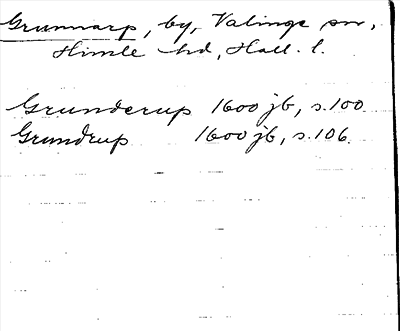 Grunnarp, by, Valinge sn,
Himle hd, Hall. l.
Grunderup 1600 jb, s. 100.
Grundrup 1600 jb, s. 106.